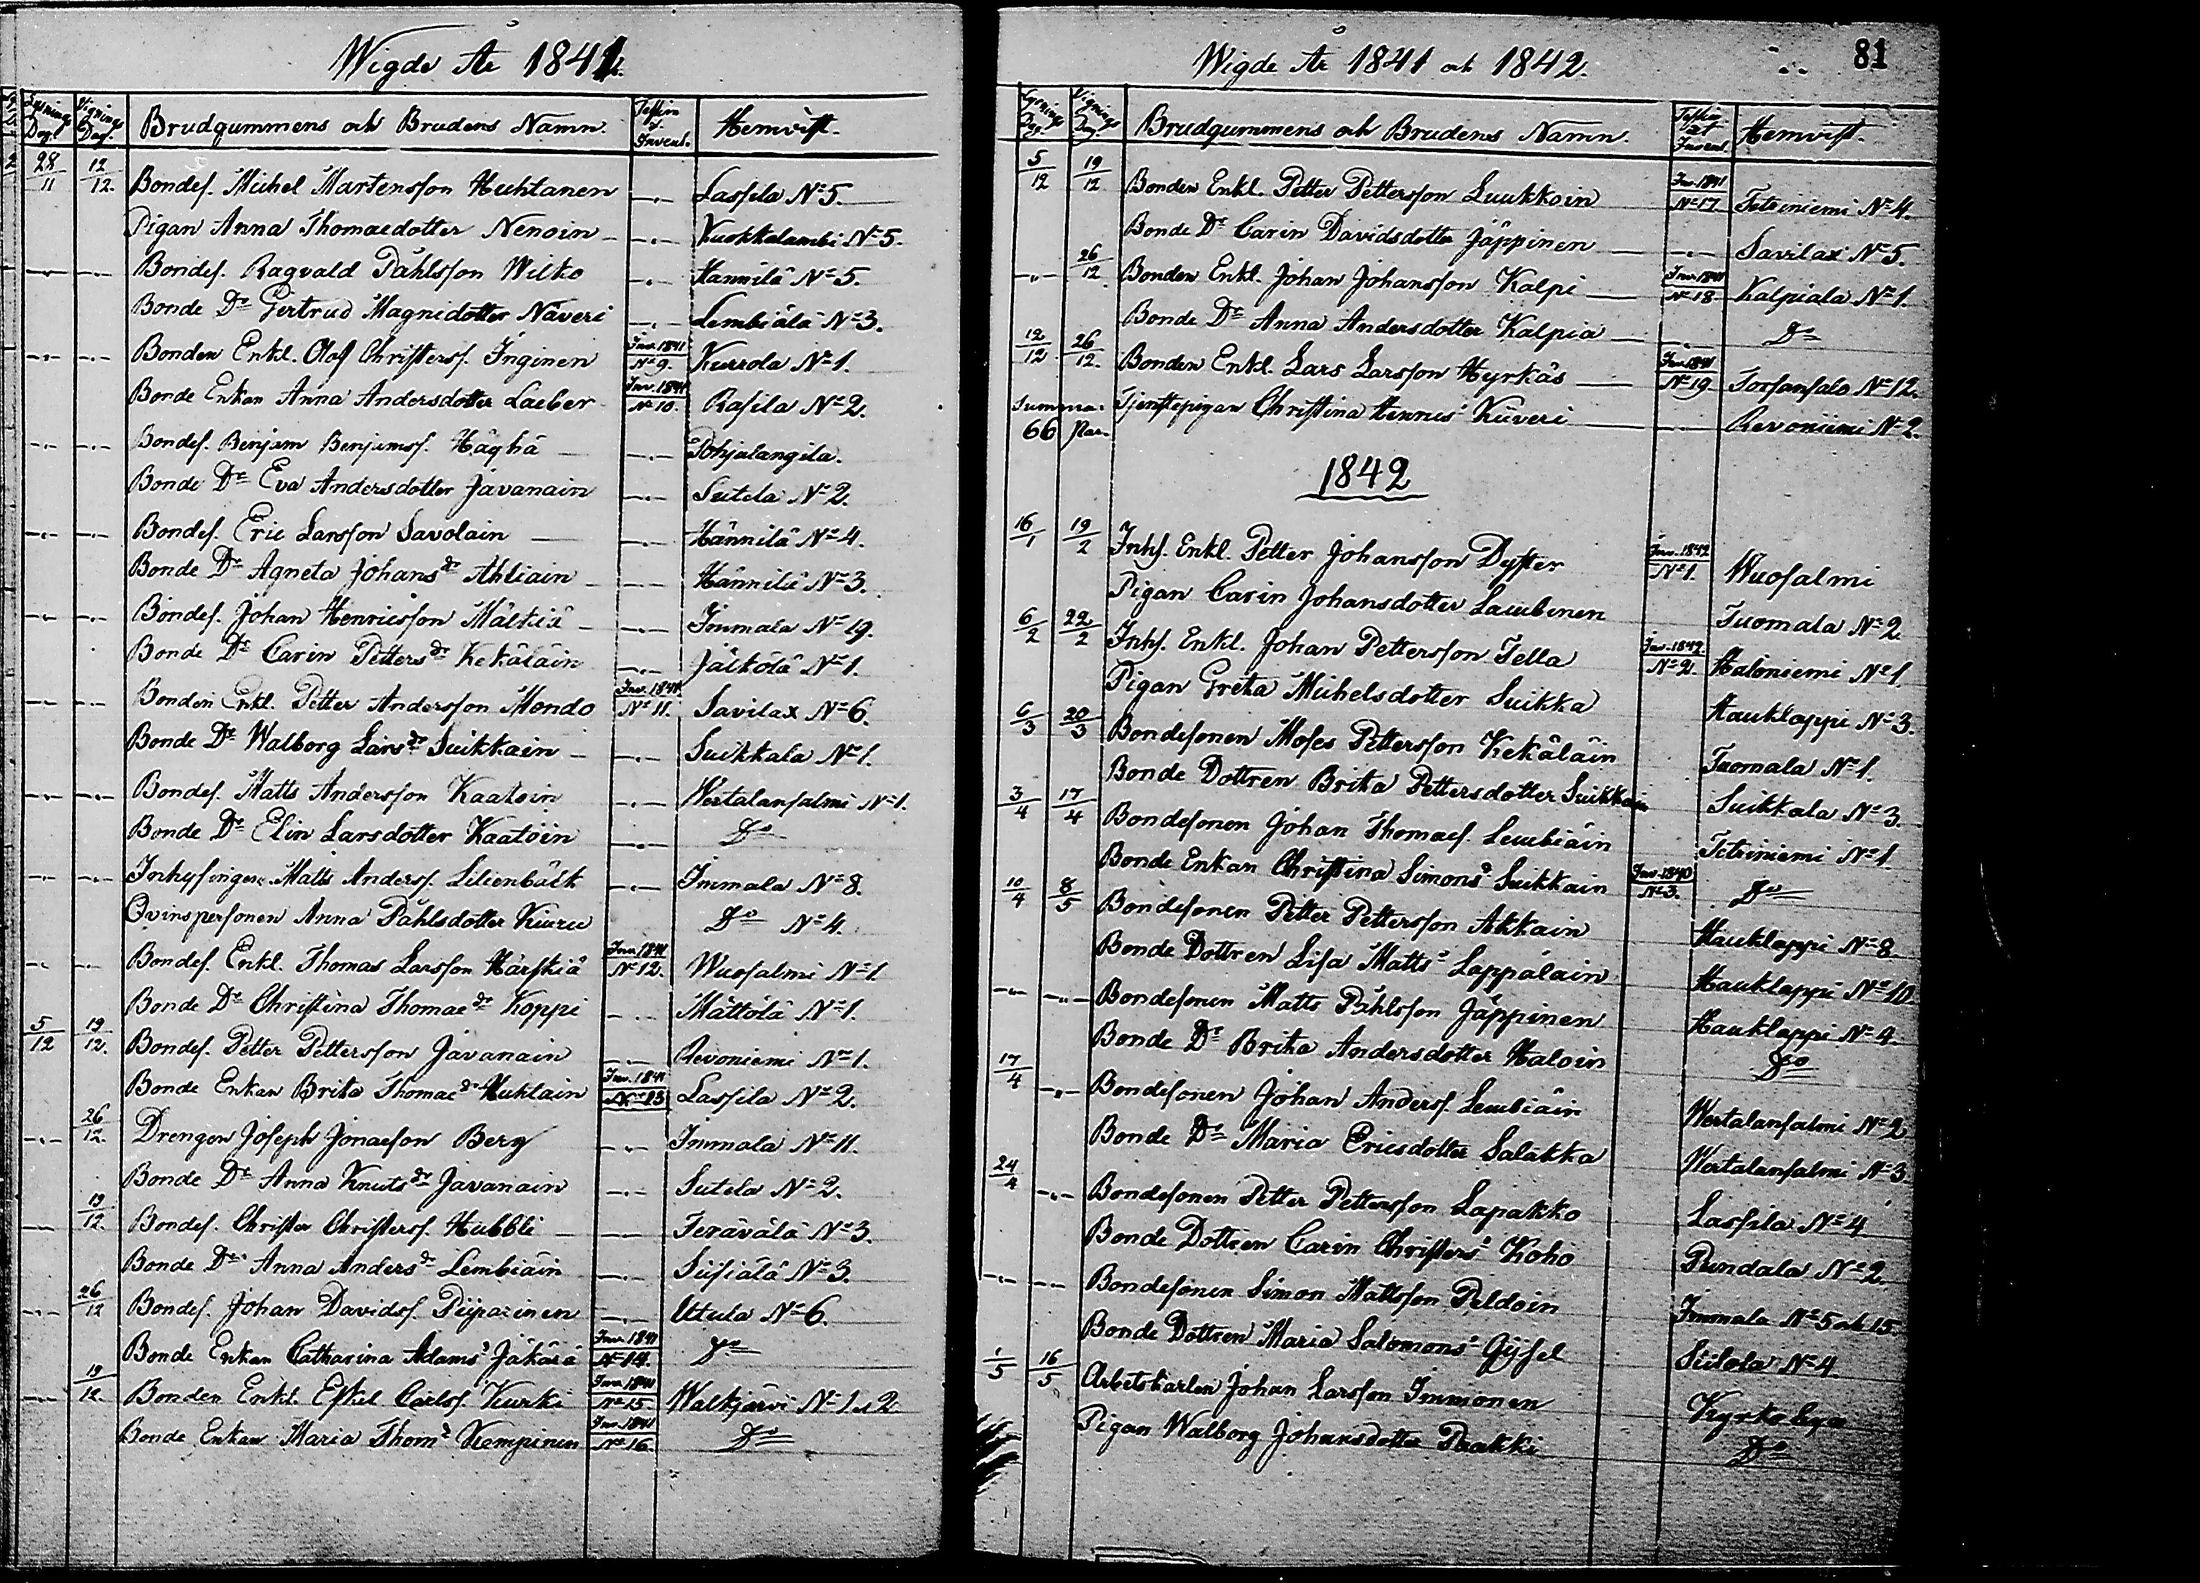 Wigde År 1841.
Lysnings Dag. Vignings Dag. Brudgummens och Brudens Namn. Testim et Invent. Hemvist.
28/11 12/12. Bondes. Michel Martensson Huhtanen Lassila No 5.
Pigan Anna Thomaedotter Nenoin Kuokkalambi No 5.
Bondes. Ragvald Påhlsson Wilko Hannila No 5.
Bonde Dr Gertrud Magnidotter Näveri Lembiälä No 3.
Bonden Enkl. Olof Christers. Inginen Inv. 1841 No 9. Kurrola No 1.
Bonde Enkan Anna Andersdotter Laeber Inv. 1841 No 10. Rasila No 2.
Bondes. Benjam Benjams. Häghä Pohjalangila.
Bonde Dr Eva Andersdotter Javanain Sutela No 2.
Bondes. Eric Larsson Savolain Hännilä No 4.
Bonde Dr Agneta Johans dr Ahtiain Hännilä No 3.
Bondes. Johan Henricsson Mälkiä Immala No 19.
Bonde Dr Carin Petters dr Kekäläin Jälkölä No 1.
Bonden Enkl. Petter Andersson Mondo Inv. 1841 No 11. Savilax No 6.
Bonde Dr Walborg Lars dr Suikkain Suikkala No 1.
Bondes. Matts Andersson Kaatoin Wirtalansalmi No 1.
Bonde Dr Elin Larsdotter Kaatoin Do
Inhysingen Matts Anders. Lilienbäck Immala No 8.
Qvinspersonen Anna Påhlsdotter Kiuru Do No 4.
Bondes. Enkl. Thomas Larsson Härskiä Inv. 1841 No 12. Wuosalmi No 1.
Bonde Dr Christina Thomae dr Koppi Mättölä No 1.
5/12 19/12. Bondes. Petter Pettersson Javanain Revoniemi No 1.
Bonde Enkan Brita Thomae dr Huhtain Inv. 1841 No 13 Lassila No 2.
26/12. Drengen Joseph Jonaeson Berg Immala No 11.
Bonde Dr Anna Knuts dr Javanain Sutela No 2.
19/12. Bondes. Christer Christers. Hubbli Terävälä No 3.
Bonde Dr Anna Anders dr Lembiäin Siisiälä No 3.
26/12 Bondes. Johan Davids. Piiparinen Utula No 6.
Bonde Enkan Catharina Adams dr Jäkärä Inv. 1841 No 14. Do
19/12. Bonden Enkl. Eskel Carls. Kurki Inv. 1841 No 15 Walkjärvi No 1 o 2
Bonde Enkan Maria Thom dr Kempinen Inv. 1841 No 16. Do
Wigde År 1841 och 1842. 81
Lysnings Dag. Vignings Dag Brudgummens och Brudens Namn. Testim et Invent. Hemvist.
5/12 19/12 Bonden Enkl. Petter Pettersson Luukkoin Inv. 1841 No 17 Teteriniemi No 4.
Bonde Dr Carin Davidsdotter Jäppinen Savilax No 5.
26/12. Bonden Enkl. Johan Johansson Kalpi Inv. 1841 No 18 Kalpiala No 1.
Bonde Dr Anna Andersdotter Kalpia Do
12/12 26/12. Bonden Enkl. Lars Larsson Hyrkäs Inv. 1841 No 19 Torsansalo No 12.
Summa: 66 Par. Tjenstepigan Christina Hennes dr Kuveri Revoniemi No 2.
1842
16/1 19/2 Inhs. Enkl. Petter Johansson Dyster Inv. 1842 No 1. Wuosalmi
Pigan Carin Johansdotter Laubenen Tuomala No 2.
6/2 22/2 Inhs. Enkl. Johan Pettersson Tella Inv. 1842 No 2. Haloniemi No 1.
Pigan Greta Michelsdotter Suikka Hauklappi No 3.
6/3 20/3 Bondesonen Moses Pettersson Kekäläin Tuomala No 1.
Bonde Dottren Brita Pettersdotter Suikkain Suikkala No 3.
3/4 17/4 Bondesonen Johan Thomaes. Lembiäin Teteriniemi No 1.
Bonde Enkan Christina Simons dr Suikkain Inv. 1840 No 3. Do
10/4 8/5 Bondesonen Petter Pettersson Akkain Hauklappi No 8.
Bonde Dottren Lisa Matts dr Lappalain Hauklappi No 10
Bondesonen Matts Påhlsson Jäppinen Hauklappi No 4.
Bonde Dr Brita Andersdotter Haloin Do
17/4 Bondesonen Johan Anders. Lembiäin Wirtalansalmi No 2
Bonde Dr Maria Ericsdotter Salakka Wirtalansalmi No 3.
24/4 Bondesonen Petter Pettersson Lapakko Lassila No 4
Bonde Dottren Carin Christers dr Koho Pundala No 2.
Bondesonen Simon Mattsson Peldoin Immala No 5 och 15
Bonde Dottren Maria Salomons dr Gijsel Siilola No 4.
1/5 16/5 Arbetskarlen Johan Larsson Immonen Kyrkobyn
Pigan Walborg Johansdotter Paakki Do